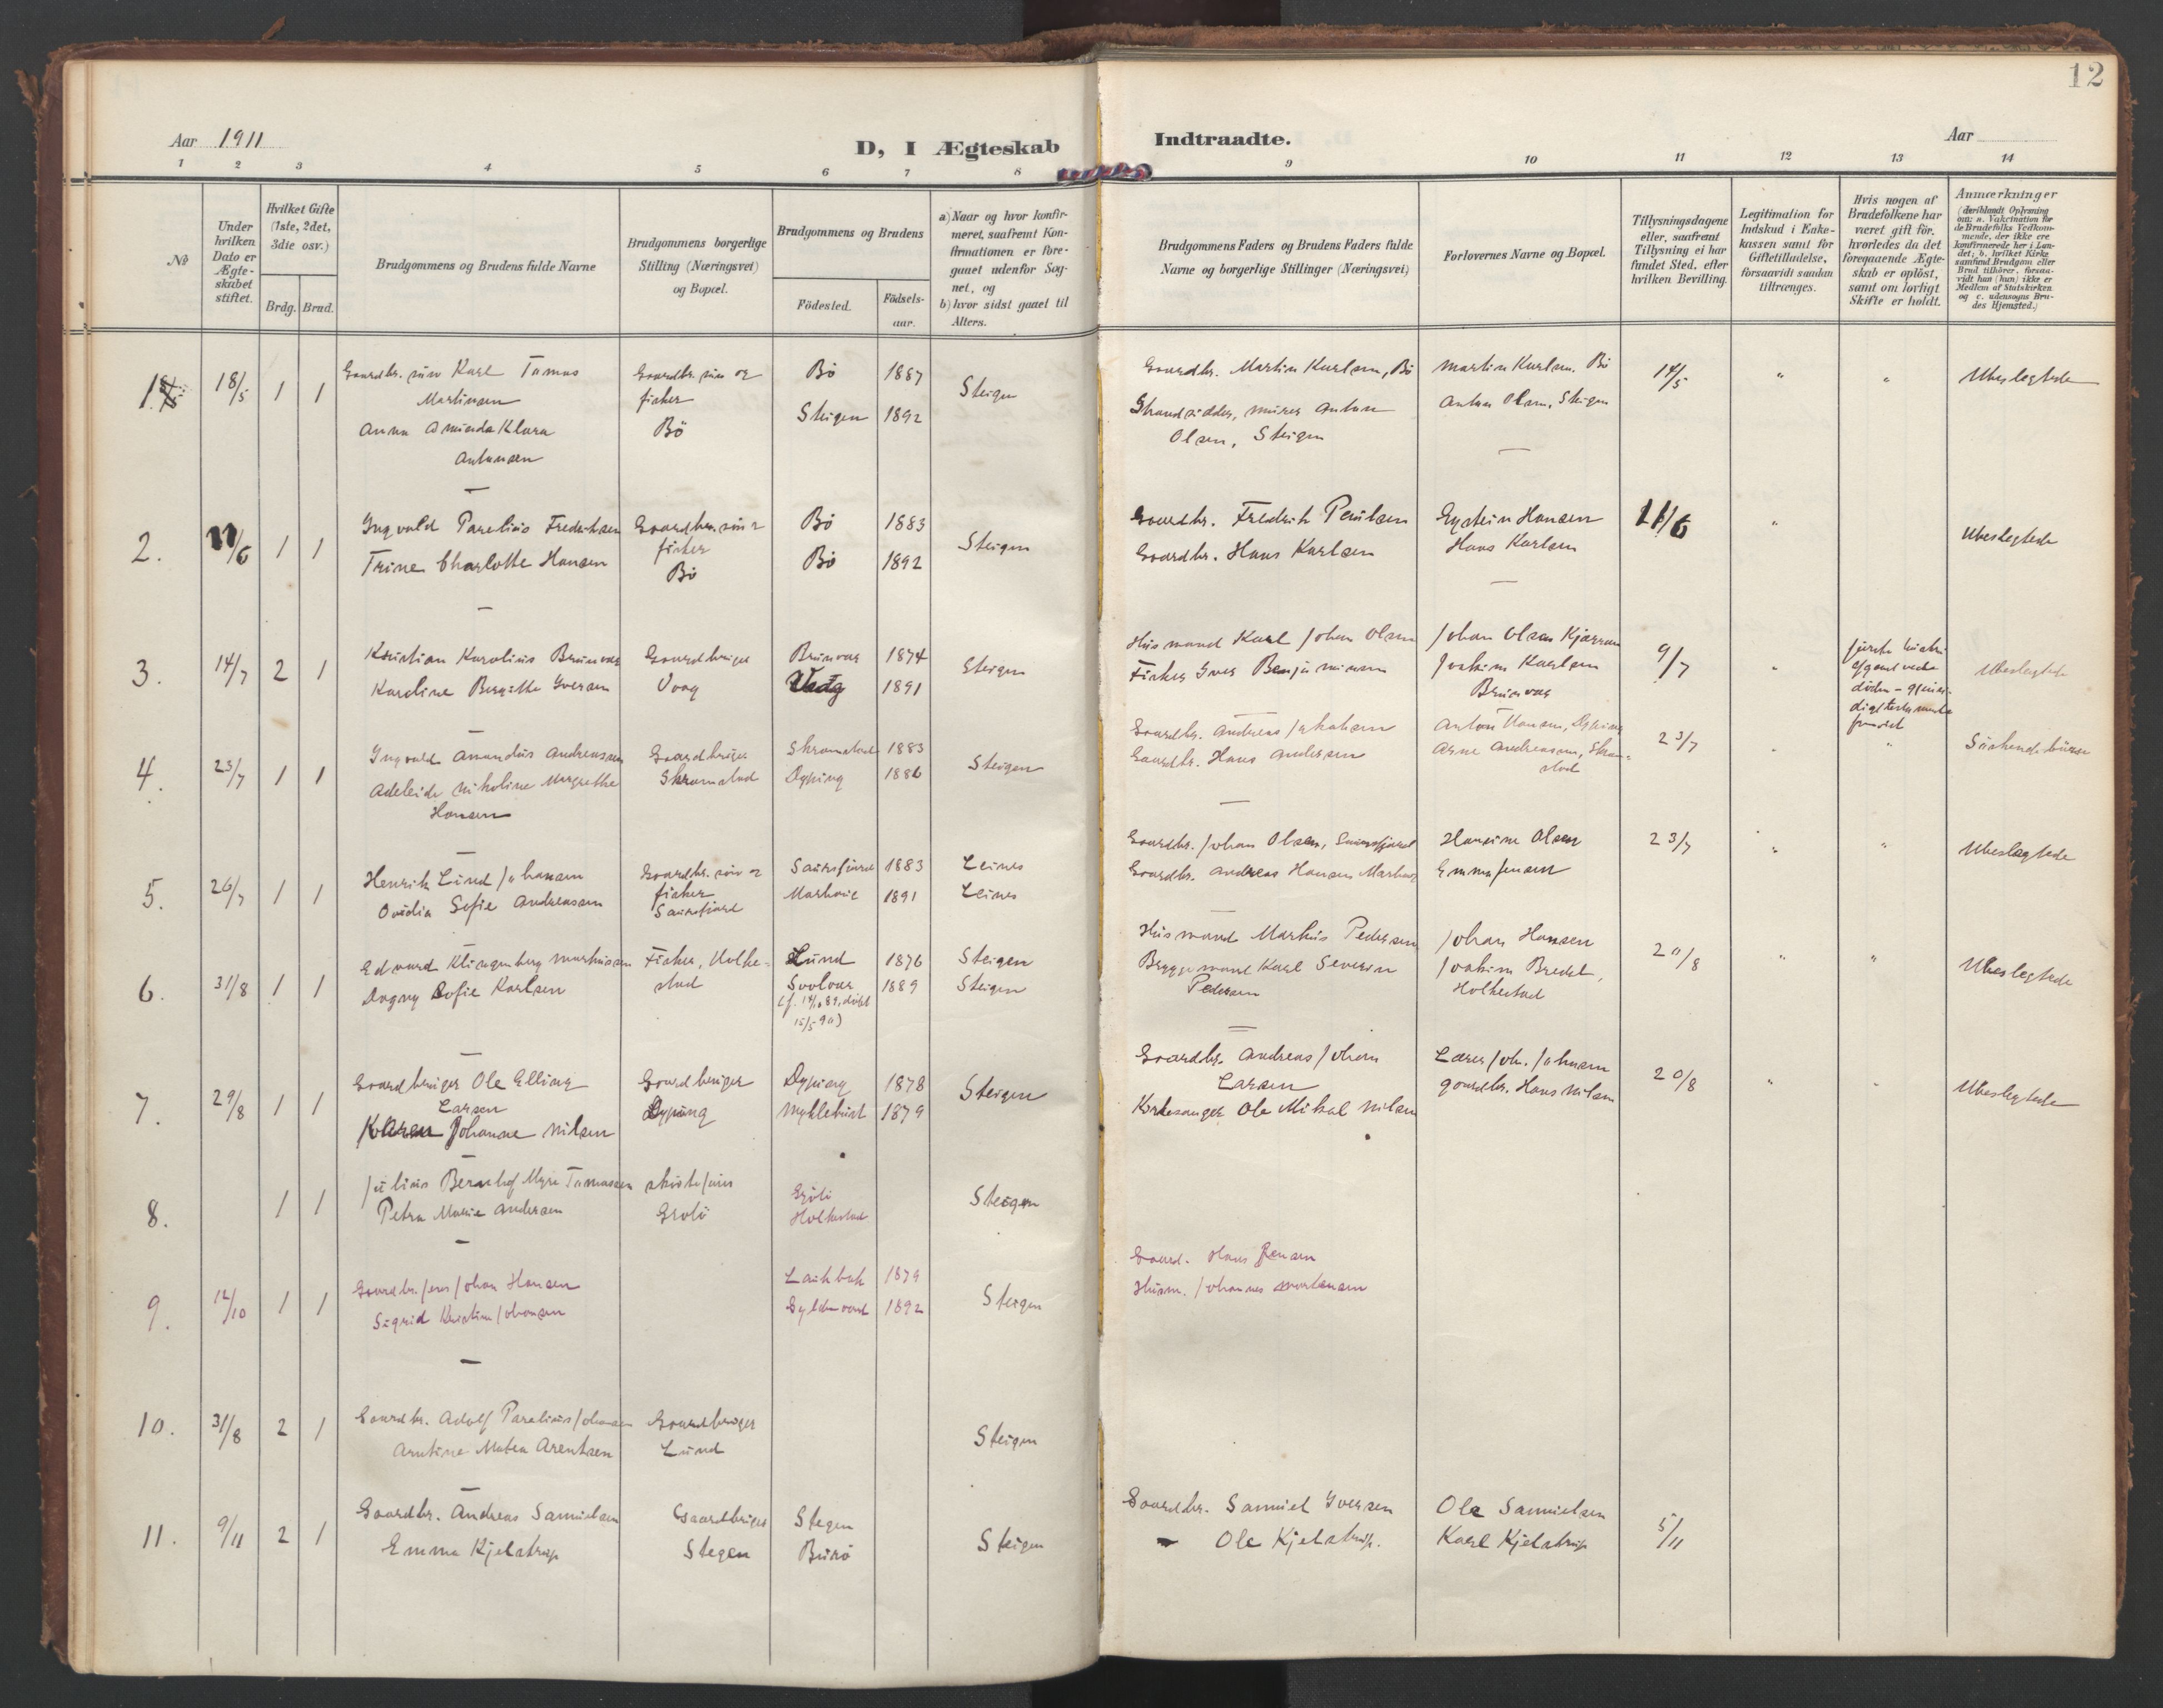 12
Aar 1911
D, I Ægteskab
Indtraadte.
Aar
1 2 3 4 5 6 7 8 9 10 11 12 13 14
No
Under hvilken Dato er Ægteskabet stiftet.
Hvilket Gifte (1ste, 2det, 3die osv.)
Brdg. Brud.
Brudgommens og Brudens fulde Navne
Brudgommens borgerlige Stilling (Næringsvei) og Bopæl.
Brudgommens og Brudens
Fødested.
Fødsels-aar.
a) Naar og hvor konfirmeret, saafremt Konfirmationen er foregaaet udenfor Sognet, og
b) hvor sidst gaaet til Alters.
Brudgommens Faders og Brudens Faders fulde Navne og borgerlige Stillinger (Næringsvei)
Forlovernes Navne og Bopæl.
Tillysningsdagene eller, saafremt Tillysning ei har fundet Sted, efter hvilken Bevilling.
Legitimation for Indskud i Enkekassen samt for Giftetilladelse, forsaavidt saadan tiltrænges.
Hvis nogen af Brudefolkene har været gift før, hvorledes da det foregaaende Ægteskab er opløst, samt om lovligt Skifte er holdt.
Anmærkninger
(deriblandt Oplysning om: a. Vakcination for de Brudefolks Vedkommende, der ikke ere konfirmerede her i Landet; b. hvilket Kirkesamfund Brudgom eller Brud tilhører, forsaavidt han (hun) ikke er Medlem af Statskirken og c. udensogns Brudes Hjemsted.)
1. 18/5 1 1 Gaardbr. søn Karl Tomas Gaardbr. søn og Bø 1887 Steigen Gaardbr. Martin Karlsen, Bø Martin Karlsen. Bø 14/5 " " Ubeslegtede
Martinsen fisker Steigen 1892 Strandsidder, murer Anton Anton Olsen, Steigen
Anna Aminda Klara Bø Olsen, Steigen
Antonsen
2. 11/6 1 1 Ingvald Parelius Fredriksen Gaardbr. søn Bø 1883 Steigen Gaardbr. Fredrik Paulsen Eystein Hansen 11/6 " Ubeslegtede
Trine Charlotte Hansen fisker Bø 1892 Gaardbr. Hans Karlsen Hans Karlsen
Bø
3. 14/7 2 1 Kristian Karolius Brunvær Gaardbruger Brunvær 1874 Steigen Husmand Karl Johan Olsen Johan Olsen 9/7 " Ubeslegtede
Karoline Bergitte Iversen Voog 1891 Fisker Iver Benjaminsen Joakim Karlsen
Brunvær
4. 23/7 1 1 Ingvald Amandus Andreassen Gaardbruger Skramstad 1883 Steigen Gaardbr. Andreas Johansen Anton Hansen, Dyping 23/7 " " Søskendebørn
Adeleide Nikoline Margrethe Skramstad Dyping 1886 Gaardbr. Hans Andersen Arne Andreassen, Skramstad
Hansen
5. 26/7 1 1 Henrik Lund Johansen Gaardbr. søn Saursfjord 1883 Leines Gaardbr. Johan Olsen, Saursfjord Hansine Olsen 23/7 " " Ubeslegtede
Ovidia Sofie Andreassen fisker 1891 Leines Gaardbr. Andreas Hansen Emma Jensen
Saursfjord
6. 31/8 1 1 Edvard Klingenberg Markussen Fisker, Holkestad Lund 1876 Steigen Husmand Markus Pedersen Johan Hansen 20/8 " " Ubeslegtede
Dagny Sofie Karlsen Svolvær 1889 Steigen Bryggemand Karl Severin Joakim Bredal,
Pedersen Holkestad
7. 29/8 1 1 Gaardbruger Ole Elling Gaardbruger Dyping 1878 Steigen Gaardbr. Andreas Johan Lærer Joh. Johnsen 20/8 " " Ubeslegtede
Larsen Dyping Myklebust 1879 Larsen gaardbr. Hans Nilsen
Karen Johanne Nilsen Kirkesanger Ole Mikal Nilsen
8. 1 1 Julius Bernhof Myre Tomassen Steigen
Petra Marie Andersen Grøtø Holkestad
9. 12/10 1 1 Gaardbr. Jens Johan Hansen Laskbak 1879 Steigen Gaard. Hans Jensen
Sigrid Kristine Johansen 1892 Husm. Johannes Mortensen
10. 31/8 2 1 Gaardbr. Adolf Parelius Johansen Gaardbruger Steigen
Arntine Matea Arentsen Lund
11. 9/11 2 1 Gaardbr. Andreas Samuelsen Gaardbruger Stegen Steigen Gaardbr. Samuel Iversen Ole Samuelsen 5/11
Emma Kjelstrup Stegen Burø " Ole Kjelstrup. Karl Kjelstrup